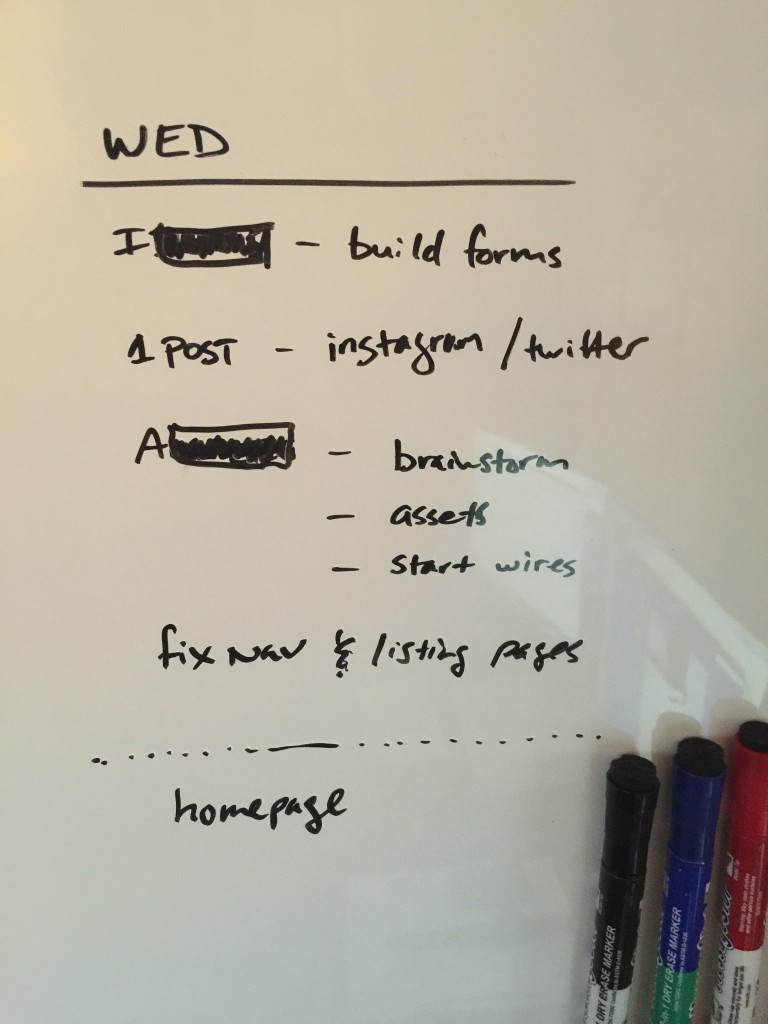 WED
I - build forms
1 POST - instagram / twitter
A - brainstorm
- assets
- start wires
fix nav & listing pages
homepage
DRY ERASE MARKER
DRY ERASE MARKER